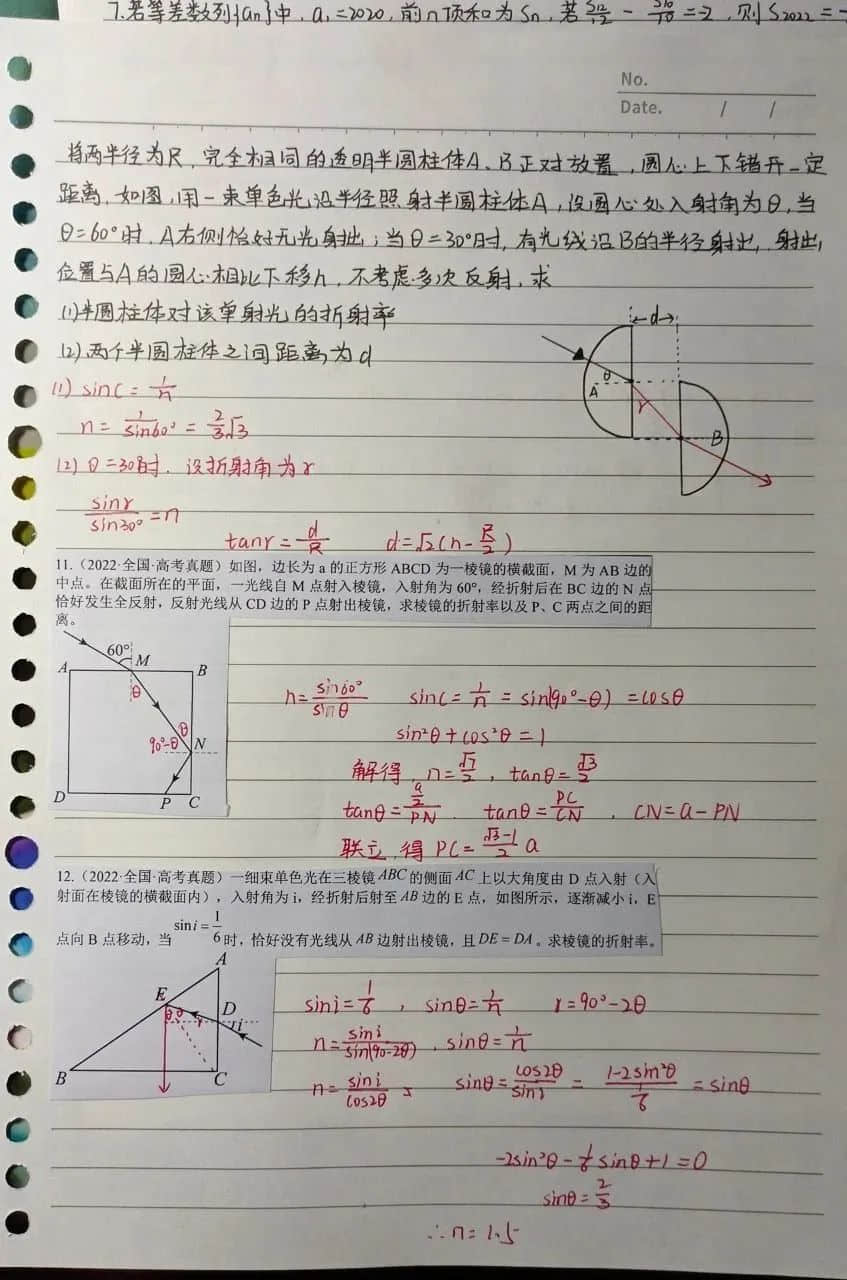 7.若等差数列{an}中，a₁=2020，前n项和为Sn，若 S12/12 - S10/10 =2，则S2022=
No.
Date. / /
将两半径为R，完全相同的透明半圆柱体A、B正对放置，圆心上下错开一定
距离，如图，用一束单色光沿半径照射半圆柱体A，设圆心处入射角为θ，当
θ=60°时，A右侧恰好无光射出；当θ=30°时，有光线沿B的半径射出，射出
位置与A的圆心相比下移h，不考虑多次反射，求
(1)半圆柱体对该单射光的折射率
(2)两个半圆柱体之间距离为d
d
θ
A
r
B
(1) sinC = 1/n
n = 1/sin60° = 2/3√3
(2) θ=30°时，设折射角为r
sinr/sin30° = n
tanr = d/R
d=√2(h-R/2)
11.（2022·全国·高考真题）如图，边长为 a 的正方形 ABCD 为一棱镜的横截面，M 为 AB 边的
中点。在截面所在的平面，一光线自 M 点射入棱镜，入射角为 60°，经折射后在 BC 边的 N 点
恰好发生全反射，反射光线从 CD 边的 P 点射出棱镜，求棱镜的折射率以及 P、C 两点之间的距
离。
60° M
A B
θ
θ
90°-θ N
D P C
n = sin60°/sinθ sinC = 1/n = sin(90°-θ) = cosθ
sin²θ + cos²θ = 1
解得，n = √7/2，tanθ = √3/2
tanθ = a/2/PN，tanθ = PC/CN，CN = a - PN
联立，得 PC = √3-1/2 a
12.（2022·全国·高考真题）一细束单色光在三棱镜 ABC 的侧面 AC 上以大角度由 D 点入射（入
射面在棱镜的横截面内），入射角为 i，经折射后射至 AB 边的 E 点，如图所示，逐渐减小 i，E
点向 B 点移动，当 sin i = 1/6 时，恰好没有光线从 AB 边射出棱镜，且 DE = DA。求棱镜的折射率。
A
E
D
θ θ r i
B C
sini = 1/6，sinθ = 1/n r = 90°-2θ
n = sini/sin(90-2θ)，sinθ = 1/n
n = sini/cos2θ
sinθ = cos2θ/sini = 1-2sin²θ/1/6 = sinθ
-2sin²θ - 1/6 sinθ + 1 = 0
sinθ = 2/3
∴ n = 1.5